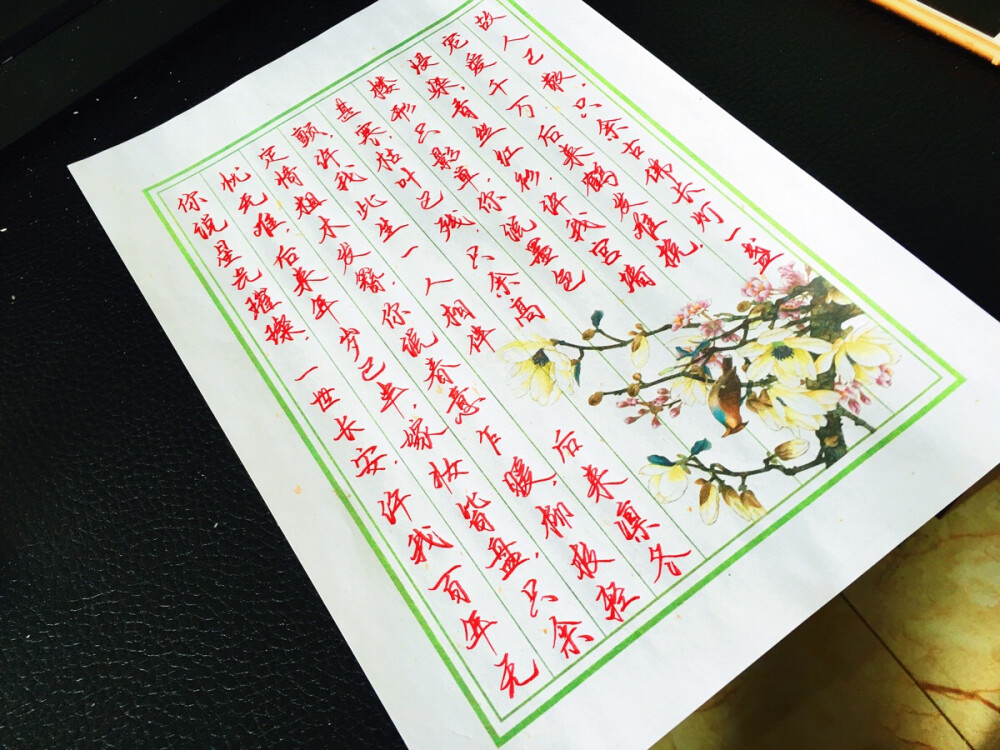 你说星光璀璨，一世长安，许我百年无
忧无难，后来年岁已半，嫁妆皆盘，只余
定情粗木发簪，你说春意乍暖，柳枝轻
颤，许我此生一人相伴，后来凛冬
甚寒，枯叶已残，只余高
楼形只影单，你说墨色
浸染，青丝红衫，许我宫墙
宠爱千万，后来鹤发难挽，
故人已散，只余古佛长灯一盏